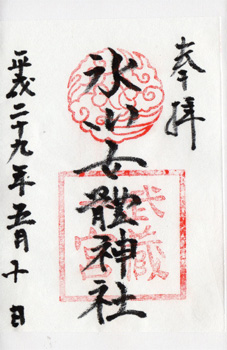 奉拝
氷川女體神社
武蔵
一宮
平成二十九年五月十日